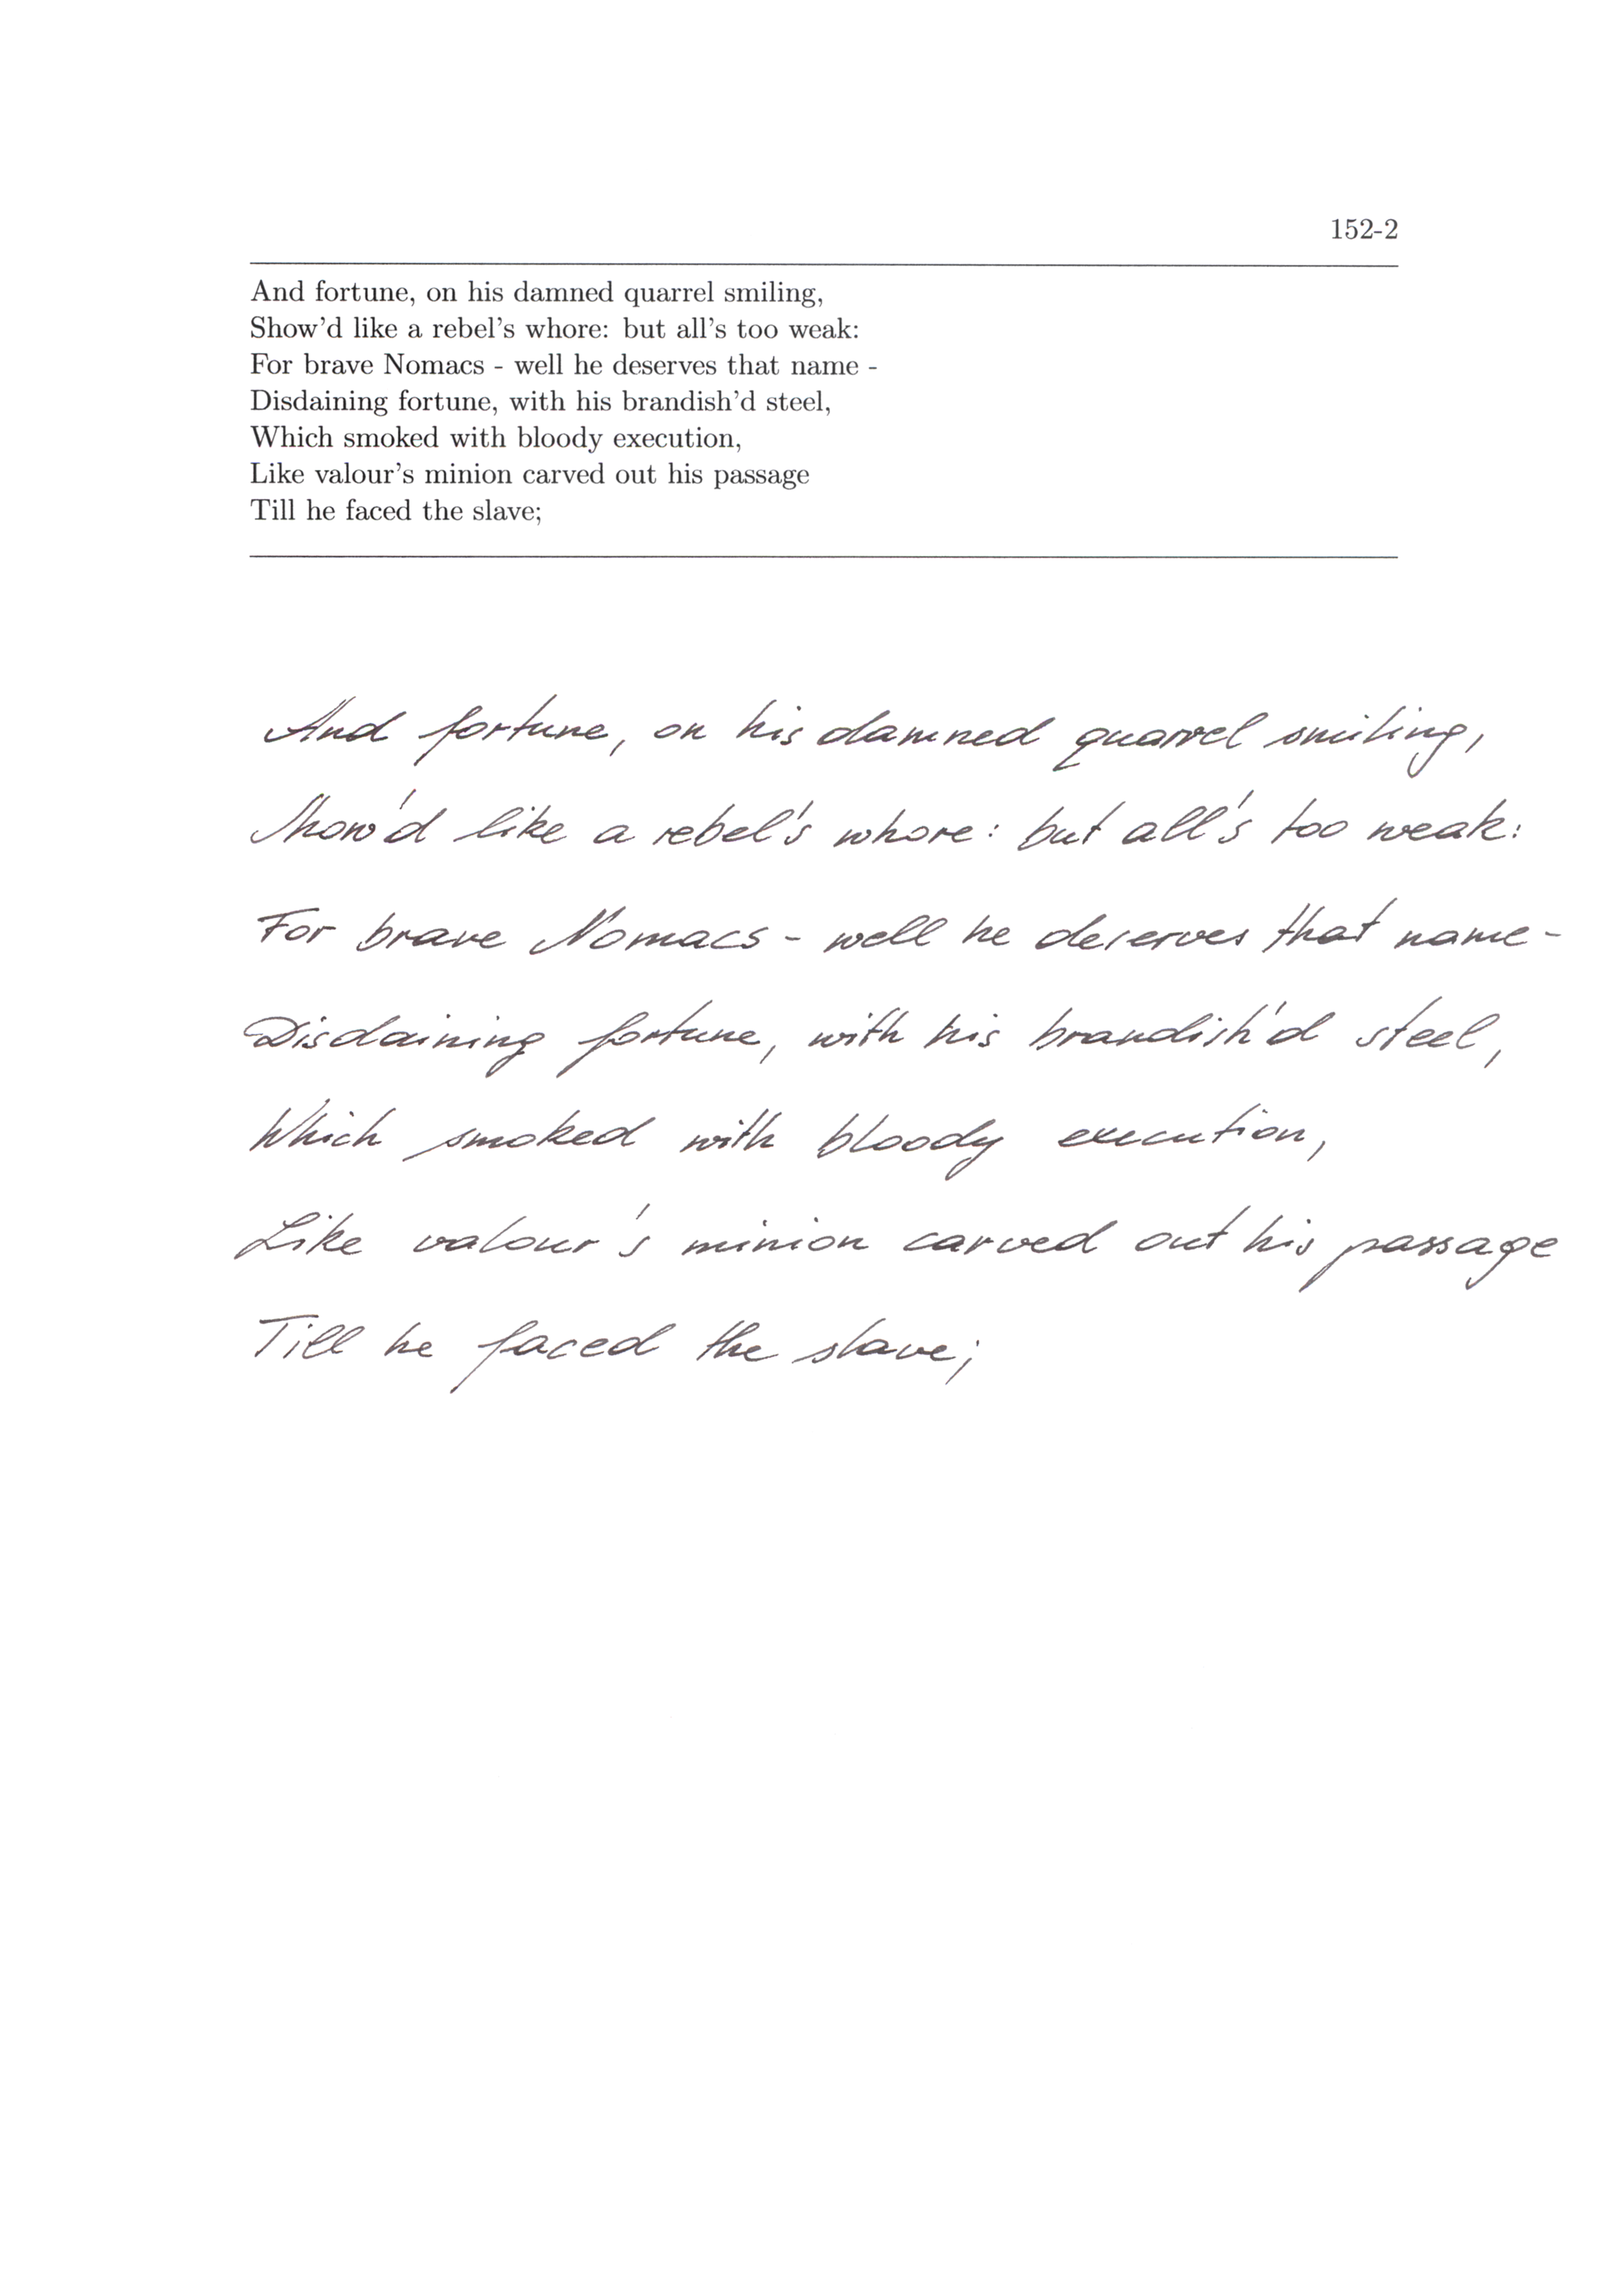 152-2
And fortune, on his damned quarrel smiling,
Show'd like a rebel's whore: but all's too weak:
For brave Nomacs - well he deserves that name -
Disdaining fortune, with his brandish'd steel,
Which smoked with bloody execution,
Like valour's minion carved out his passage
Till he faced the slave;
And fortune, on his damned quarrel smiling,
Show'd like a rebel's whore: but all's too weak:
For brave Nomacs - well he deserves that name -
Disdaining fortune, with his brandish'd steel,
Which smoked with bloody execution,
Like valour's minion carved out his passage
Till he faced the slave;